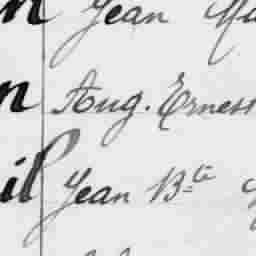 n Jean Ma
n Aug. Erness
il Jean Bte